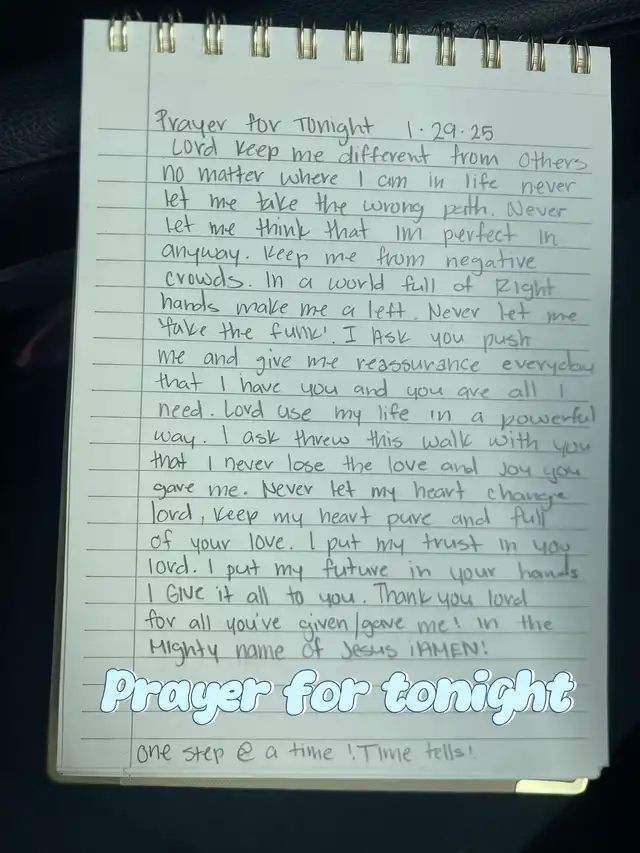 Prayer for Tonight 1.29.25
Lord keep me different from others
no matter where I am in life never
let me take the wrong path. Never
let me think that Im perfect in
anyway. Keep me from negative
crowds. In a world full of Right
hands make me a left. Never let me
'fake the funk'. I Ask you push
me and give me reassurance everyday
that I have you and you are all I
need. Lord use my life in a powerful
way. I ask threw this walk with you
that I never lose the love and Joy you
gave me. Never let my heart change
lord, keep my heart pure and full
of your love. I put my trust in you
lord. I put my future in your hands
I Give it all to you. Thank you lord
for all you've given/gave me! in the
Mighty name of Jesus iAMEN!
Prayer for tonight
one step @ a time ! Time tells!